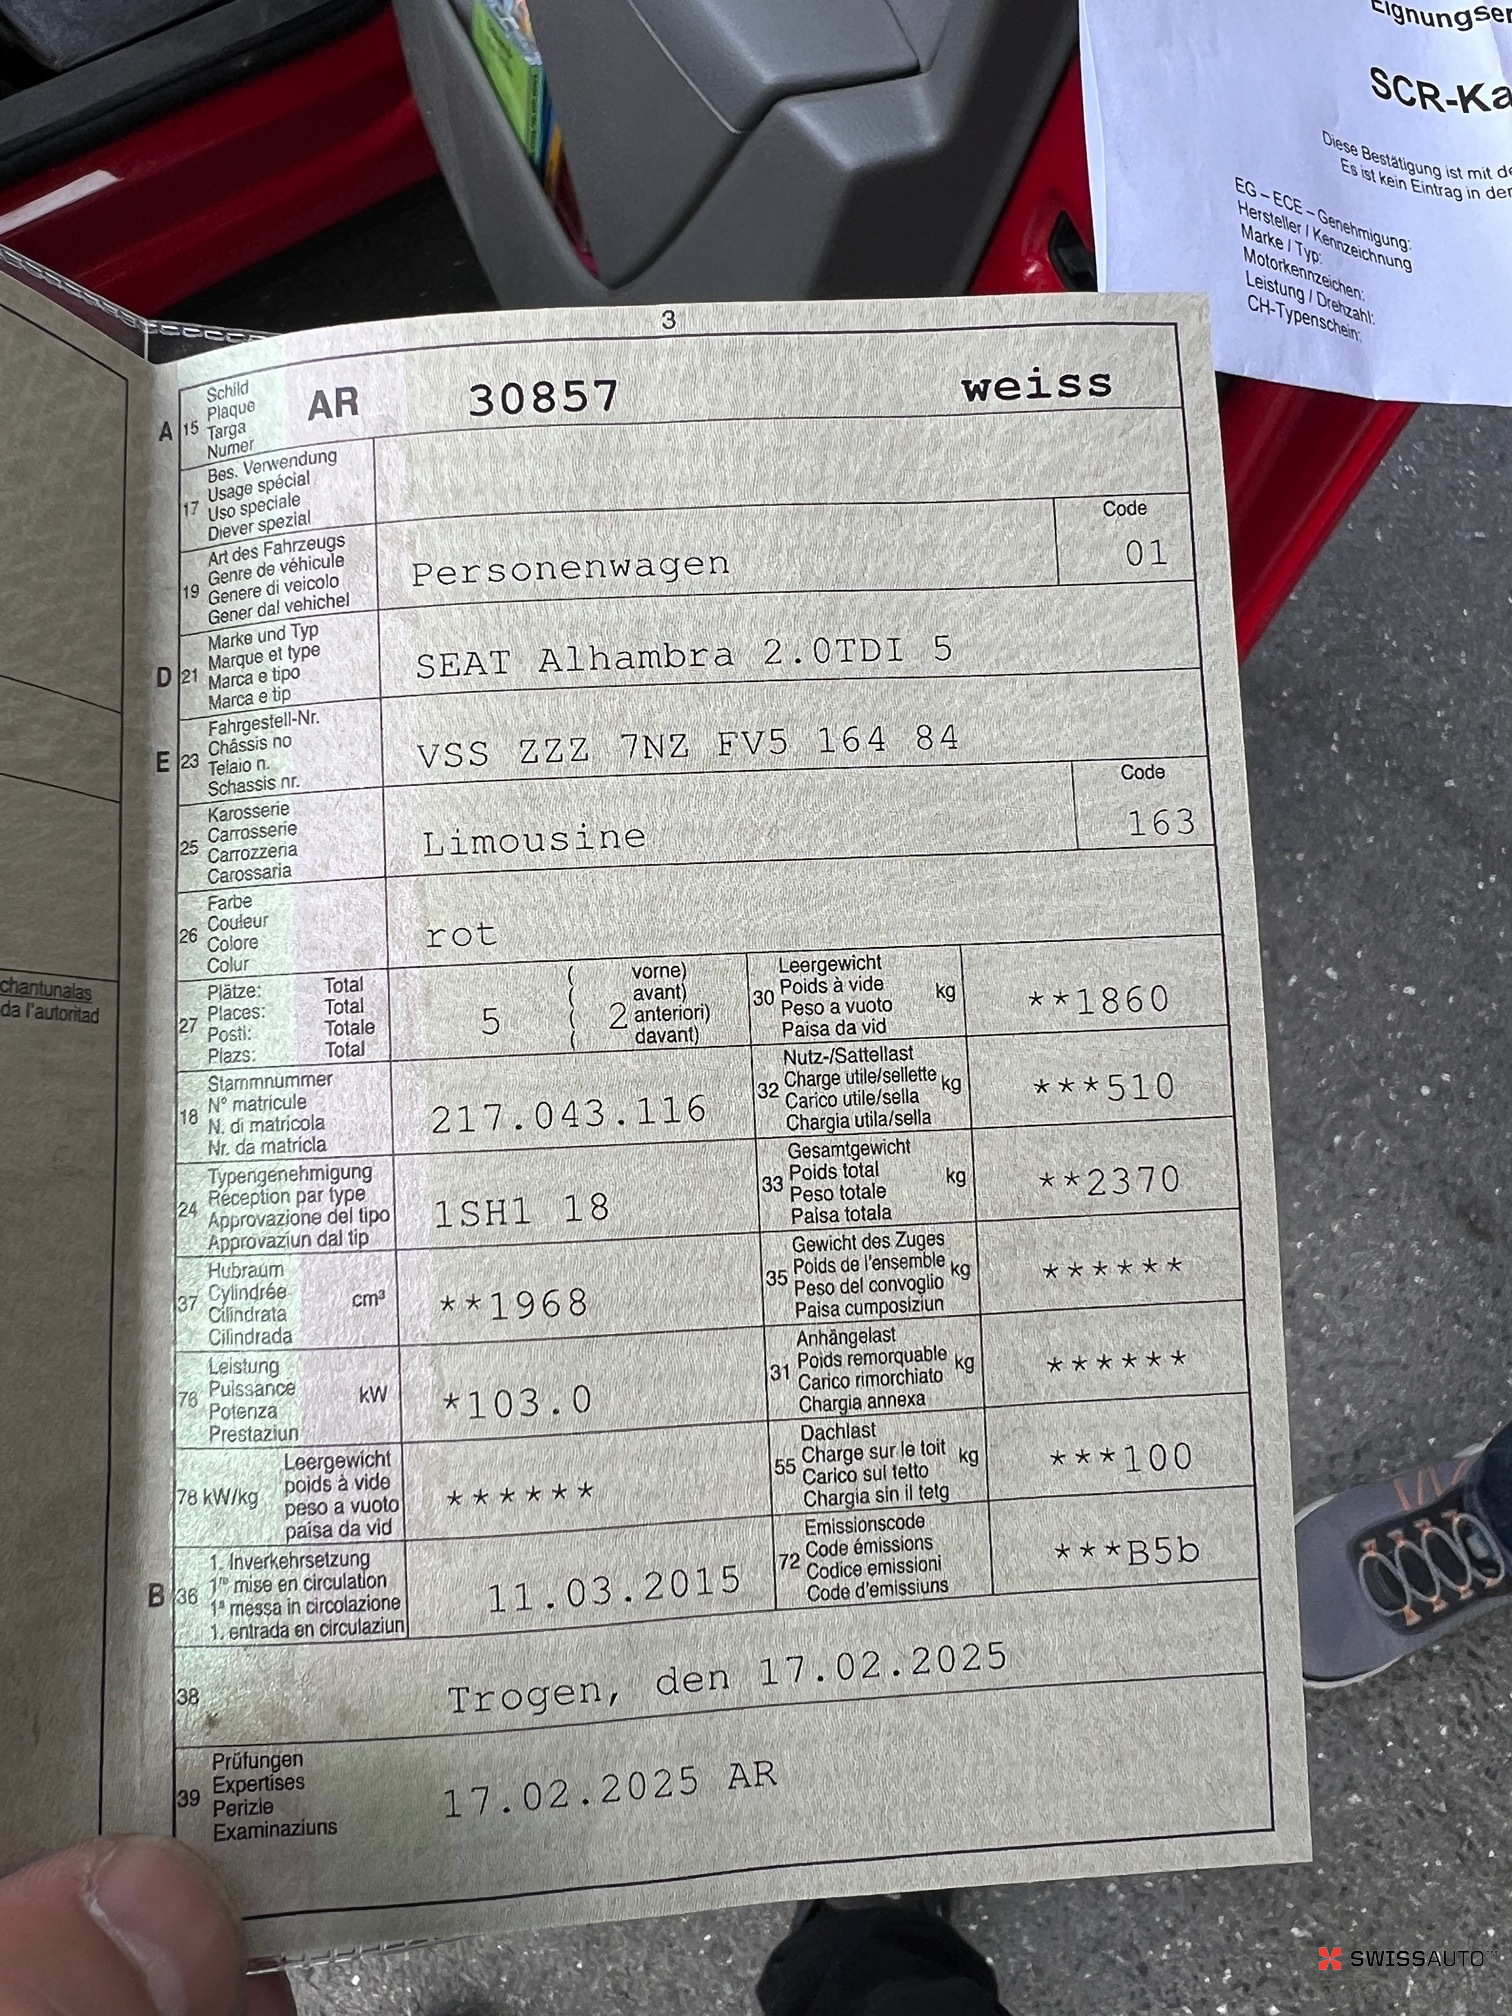 Eignungser
SCR-Ka
Diese Bestätigung ist mit de
Es ist kein Eintrag in der
EG – ECE – Genehmigung:
Hersteller / Kennzeichnung
Marke / Typ:
Motorkennzeichen:
Leistung / Drehzahl:
CH-Typenschein:
3
A 15 Schild
Plaque
Targa
Numer
AR 30857 weiss
17 Bes. Verwendung
Usage spécial
Uso speciale
Diever spezial
19 Art des Fahrzeugs
Genre de véhicule
Genere di veicolo
Gener dal vehichel
Personenwagen
Code
01
D 21 Marke und Typ
Marque et type
Marca e tipo
Marca e tip
SEAT Alhambra 2.0TDI 5
E 23 Fahrgestell-Nr.
Châssis no
Telaio n.
Schassis nr.
VSS ZZZ 7NZ FV5 164 84
25 Karosserie
Carrosserie
Carrozzeria
Carossaria
Limousine
Code
163
26 Farbe
Couleur
Colore
Colur
rot
27 Plätze: Total
Places: Total
Posti: Totale
Plazs: Total
5
( vorne)
( avant)
( 2 anteriori)
( davant)
30 Leergewicht
Poids à vide
Peso a vuoto
Paisa da vid
kg
**1860
18 Stammnummer
N° matricule
N. di matricola
Nr. da matricla
217.043.116
32 Nutz-/Sattellast
Charge utile/sellette
Carico utile/sella
Chargia utila/sella
kg
***510
24 Typengenehmigung
Réception par type
Approvazione del tipo
Approvaziun dal tip
1SH1 18
33 Gesamtgewicht
Poids total
Peso totale
Paisa totala
kg
**2370
37 Hubraum
Cylindrée
Cilindrata
Cilindrada
cm³
**1968
35 Gewicht des Zuges
Poids de l'ensemble
Peso del convoglio
Paisa cumposiziun
kg
******
76 Leistung
Puissance
Potenza
Prestaziun
kW
*103.0
31 Anhängelast
Poids remorquable
Carico rimorchiato
Chargia annexa
kg
******
78 kW/kg
Leergewicht
poids à vide
peso a vuoto
paisa da vid
******
55 Dachlast
Charge sur le toit
Carico sul tetto
Chargia sin il tetg
kg
***100
B 36 1. Inverkehrsetzung
1re mise en circulation
1a messa in circolazione
1. entrada en circulaziun
11.03.2015
72 Emissionscode
Code émissions
Codice emissioni
Code d'emissiuns
***B5b
38
Trogen, den 17.02.2025
39 Prüfungen
Expertises
Perizie
Examinaziuns
17.02.2025 AR
chantunalas
da l'autoritad
SWISSAUTO™